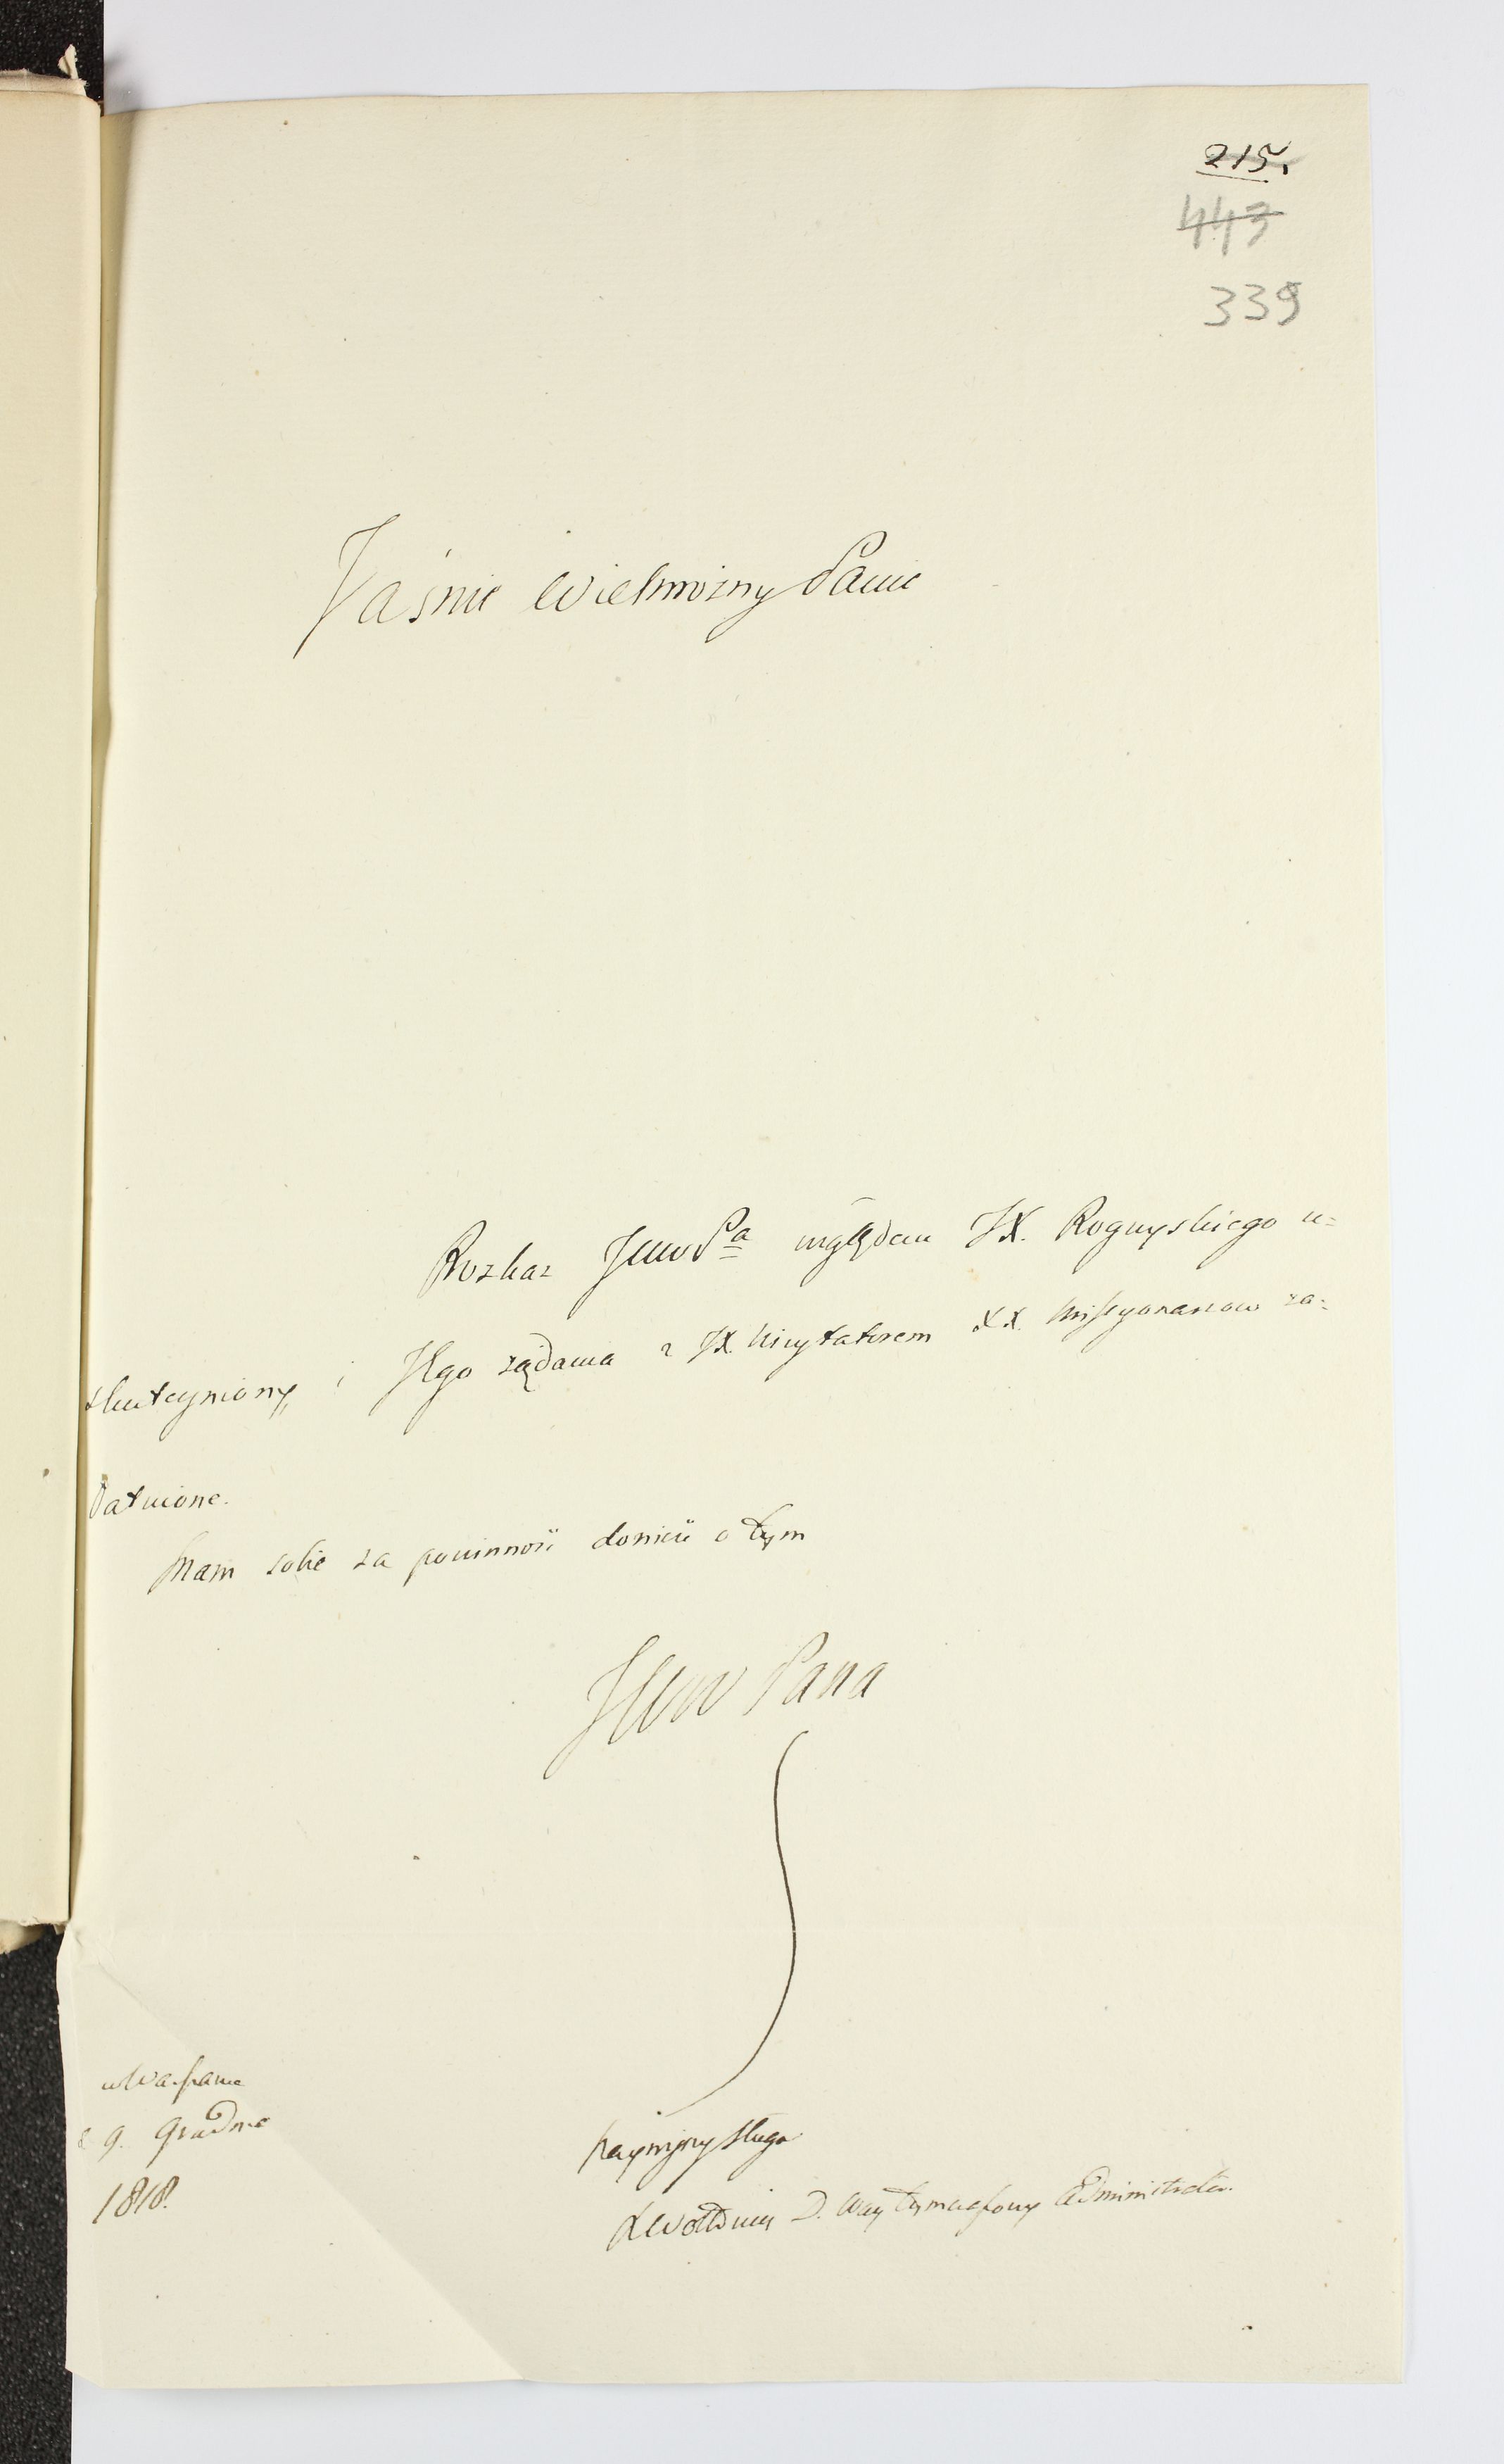 215.
443
339
Jaśnie Wielmożny Panie
Rozkaz JWWPa względem JX. Roguyskiego u=
skuteczniony, i Jego żądania z JX. Wizytatorem XX. Missyonarzow za=
łatwione.
Mam sobie za powinność donieść o tym
JWW Pana
w Warszawie
d 9. Grudnia
1818.
Nayniższy Sługa
D. Administrator.